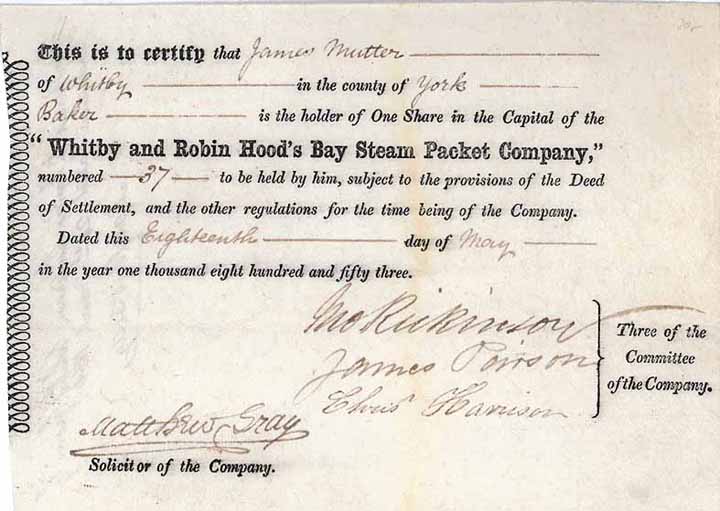 This is to certify that James Mutter
of Whitby in the county of York
Baker is the holder of One Share in the Capital of the
"Whitby and Robin Hood's Bay Steam Packet Company,"
numbered 37 to be held by him, subject to the provisions of the Deed
of Settlement, and the other regulations for the time being of the Company.
Dated this Eighteenth day of May
in the year one thousand eight hundred and fifty three.
James
Chrisr Harrison
Three of the
Committee
of the Company.
Matthew Gray
Solicitor of the Company.